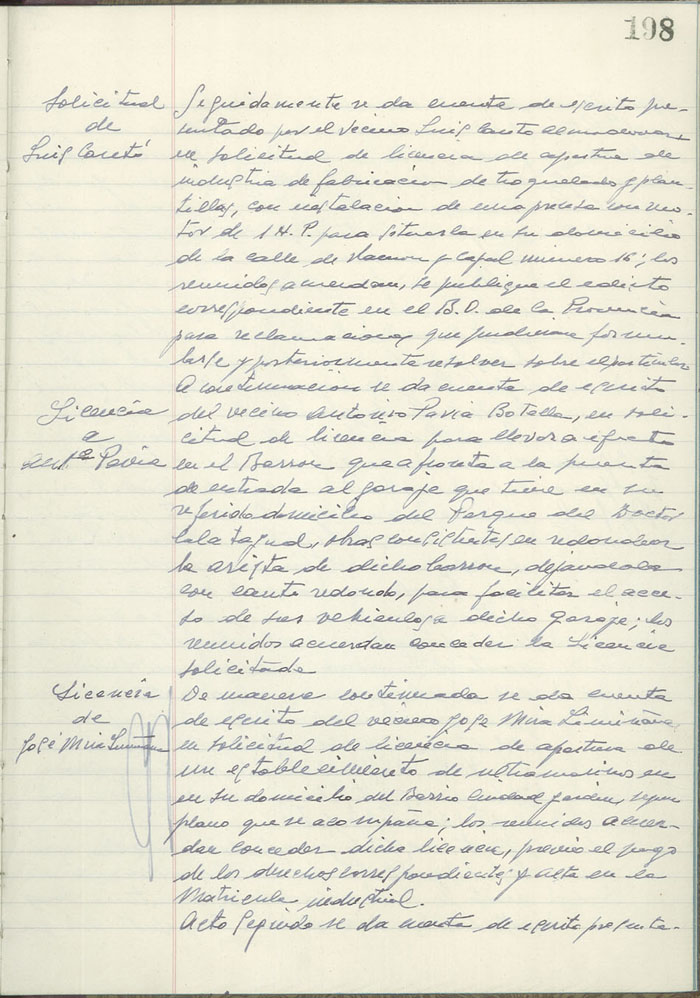 198
Solicitud
de
Luis Cantó
Seguidamente se da cuenta de escrito pre-
sentado por el vecino Luis Canto Almodovar
en solicitud de licencia de apertura de
industria de fabricación de troquelados y plan-
tillas, con instalacion de una prensa con mo-
tor de 1 H.P. para situarla en su domicilio
de la calle de Ramon y Cajal número 16; los
reunidos acuerdan, se publique el edicto
correspondiente en el B.O. de la Provincia
para reclamaciones que pudieran formu-
larse y posteriormente resolver sobre el particular
Licencia
a
Antº Pavia
A continuación se da cuenta de escrito
del vecino Antonio Pavia Botella, en soli-
citud de licencia para llevar a efecto
en el Barron que afronta a la puerta
de entrada al garaje que tiene en su
referido domicilio del Parque del Doctor
Calatayud, obras consistentes en redondear
la arista de dicho barron, dejandola
con canto redondo, para facilitar el acce-
so de sus vehiculos a dicho garaje; los
reunidos acuerdan conceder la Licencia
solicitada
Licencia
de
José Mira Limiñana
De manera continuada se da cuenta
de escrito del vecino José Mira Limiñana
en solicitud de licencia de apertura de
un establecimiento de ultramarinos en
en su domicilio del Barrio Ciudad Jardin, segun
plano que se acompaña; los reunidos acuer-
dan conceder dicha licencia, previo el pago
de los derechos correspondientes y alta en la
Matricula industrial.
Acto seguido se da cuenta de escrito presenta-